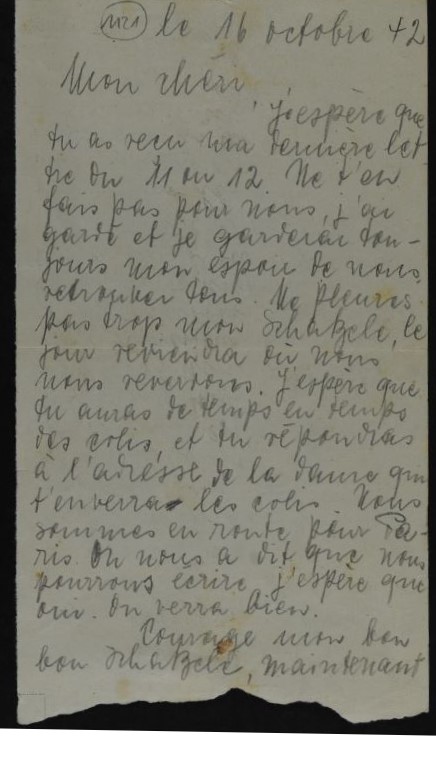 1121 le 16 octobre 42
Mon chéri
, j'espère que
tu as reçu ma dernière let
tre du 11 ou 12. Ne t'en
fais pas pour nous, j'ai
gardé et je garderai tou-
jours mon espoir de nous
retrouver tous. Ne pleures
pas trop mon Schatzele, le
jour reviendra où nous
nous reverrons. J'espère que
tu auras de temps en temps
des colis, et tu répondras
à l'adresse de la dame qui
t'enverra les colis. Nous
sommes en route pour Pa-
ris. On nous a dit que nous
pourrons écrire, j'espère que
oui. On verra bien.
Courage mon bon
bon Schatzele, maintenant